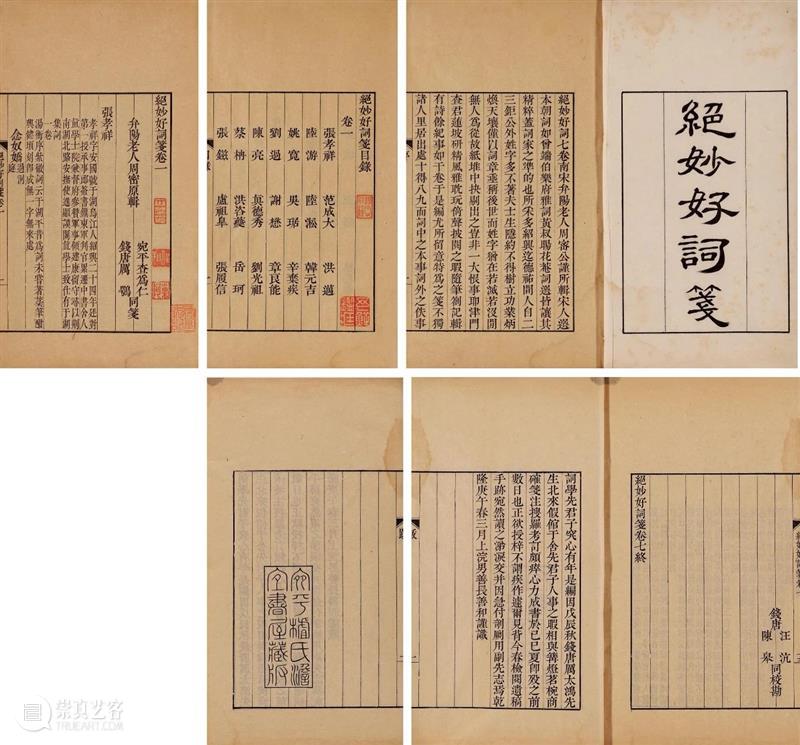 絕妙好詞箋
絕妙好詞七卷南宋弁陽老人周密公謹所輯宋人選
本朝詞如曾端伯樂府雅詞黃叔暘花菴詞選皆讓其
精粹葢詞家之準的也所采多紹興迄德祐間人自二
三鉅公外姓字多不著夫士生隱約不得樹立功業炳
煥天壤僅以詞章垂稱後世而姓字猶在若滅若沒間
無人爲從故紙堆中抉剔出之豈非一大恨事耶津門
查君蓮坡研精風雅躭玩倚聲披閱之暇隨筆劄記輯
有詩餘紀事如干卷于是編尤所留意特爲之箋不獨
諸人里居出處十得八九而詞中之本事詞外之佚事
絕妙好詞箋目錄
卷一
張孝祥 范成大 洪邁
陸游 陸淞 韓元吉
姚寬 吳琚 辛棄疾
劉過 謝懋 章良能
陳亮 眞德秀 劉光祖
蔡柟 洪咨夔 岳珂
張鎡 盧祖皋 張履信
絕妙好詞箋卷一
弁陽老人周密原輯
宛平查爲仁
錢唐厲鶚同箋
張孝祥
孝祥字安國號于湖烏江人紹興二十四年廷對
第一授承事郎簽書鎮東軍判官累遷中書舍人
直學士院兼督府參贊軍事領建康留守尋以荆
南湖北路安撫使進顯謨閣直學士致仕有于湖
集詞
一卷
湯衡序紫薇詞云于湖平昔爲詞未甞著藁筆酣
興健頃刻卽成無一字無來處
念奴嬌過洞庭
絕妙好詞箋卷一
絕妙好詞箋卷七終
錢唐汪沆
陳皋同校勘
詞學先君子究心有年是編因戊辰秋錢唐厲太鴻先
生北來假館于舍先君子人事之暇相與篝燈茗椀商
確箋注搜羅考訂頗瘁心力成書於己巳夏卽歿之前
數日也正欲授梓不謂疾作遽爾見背今春檢閱遺稿
手跡宛然讀之涕淚交幷因急付剞劂用副先志焉乾
隆庚午春三月上浣男善長善和謹識
跋
宛平查氏澹
宜書屋藏版
崇真艺客
TRUEART.COM